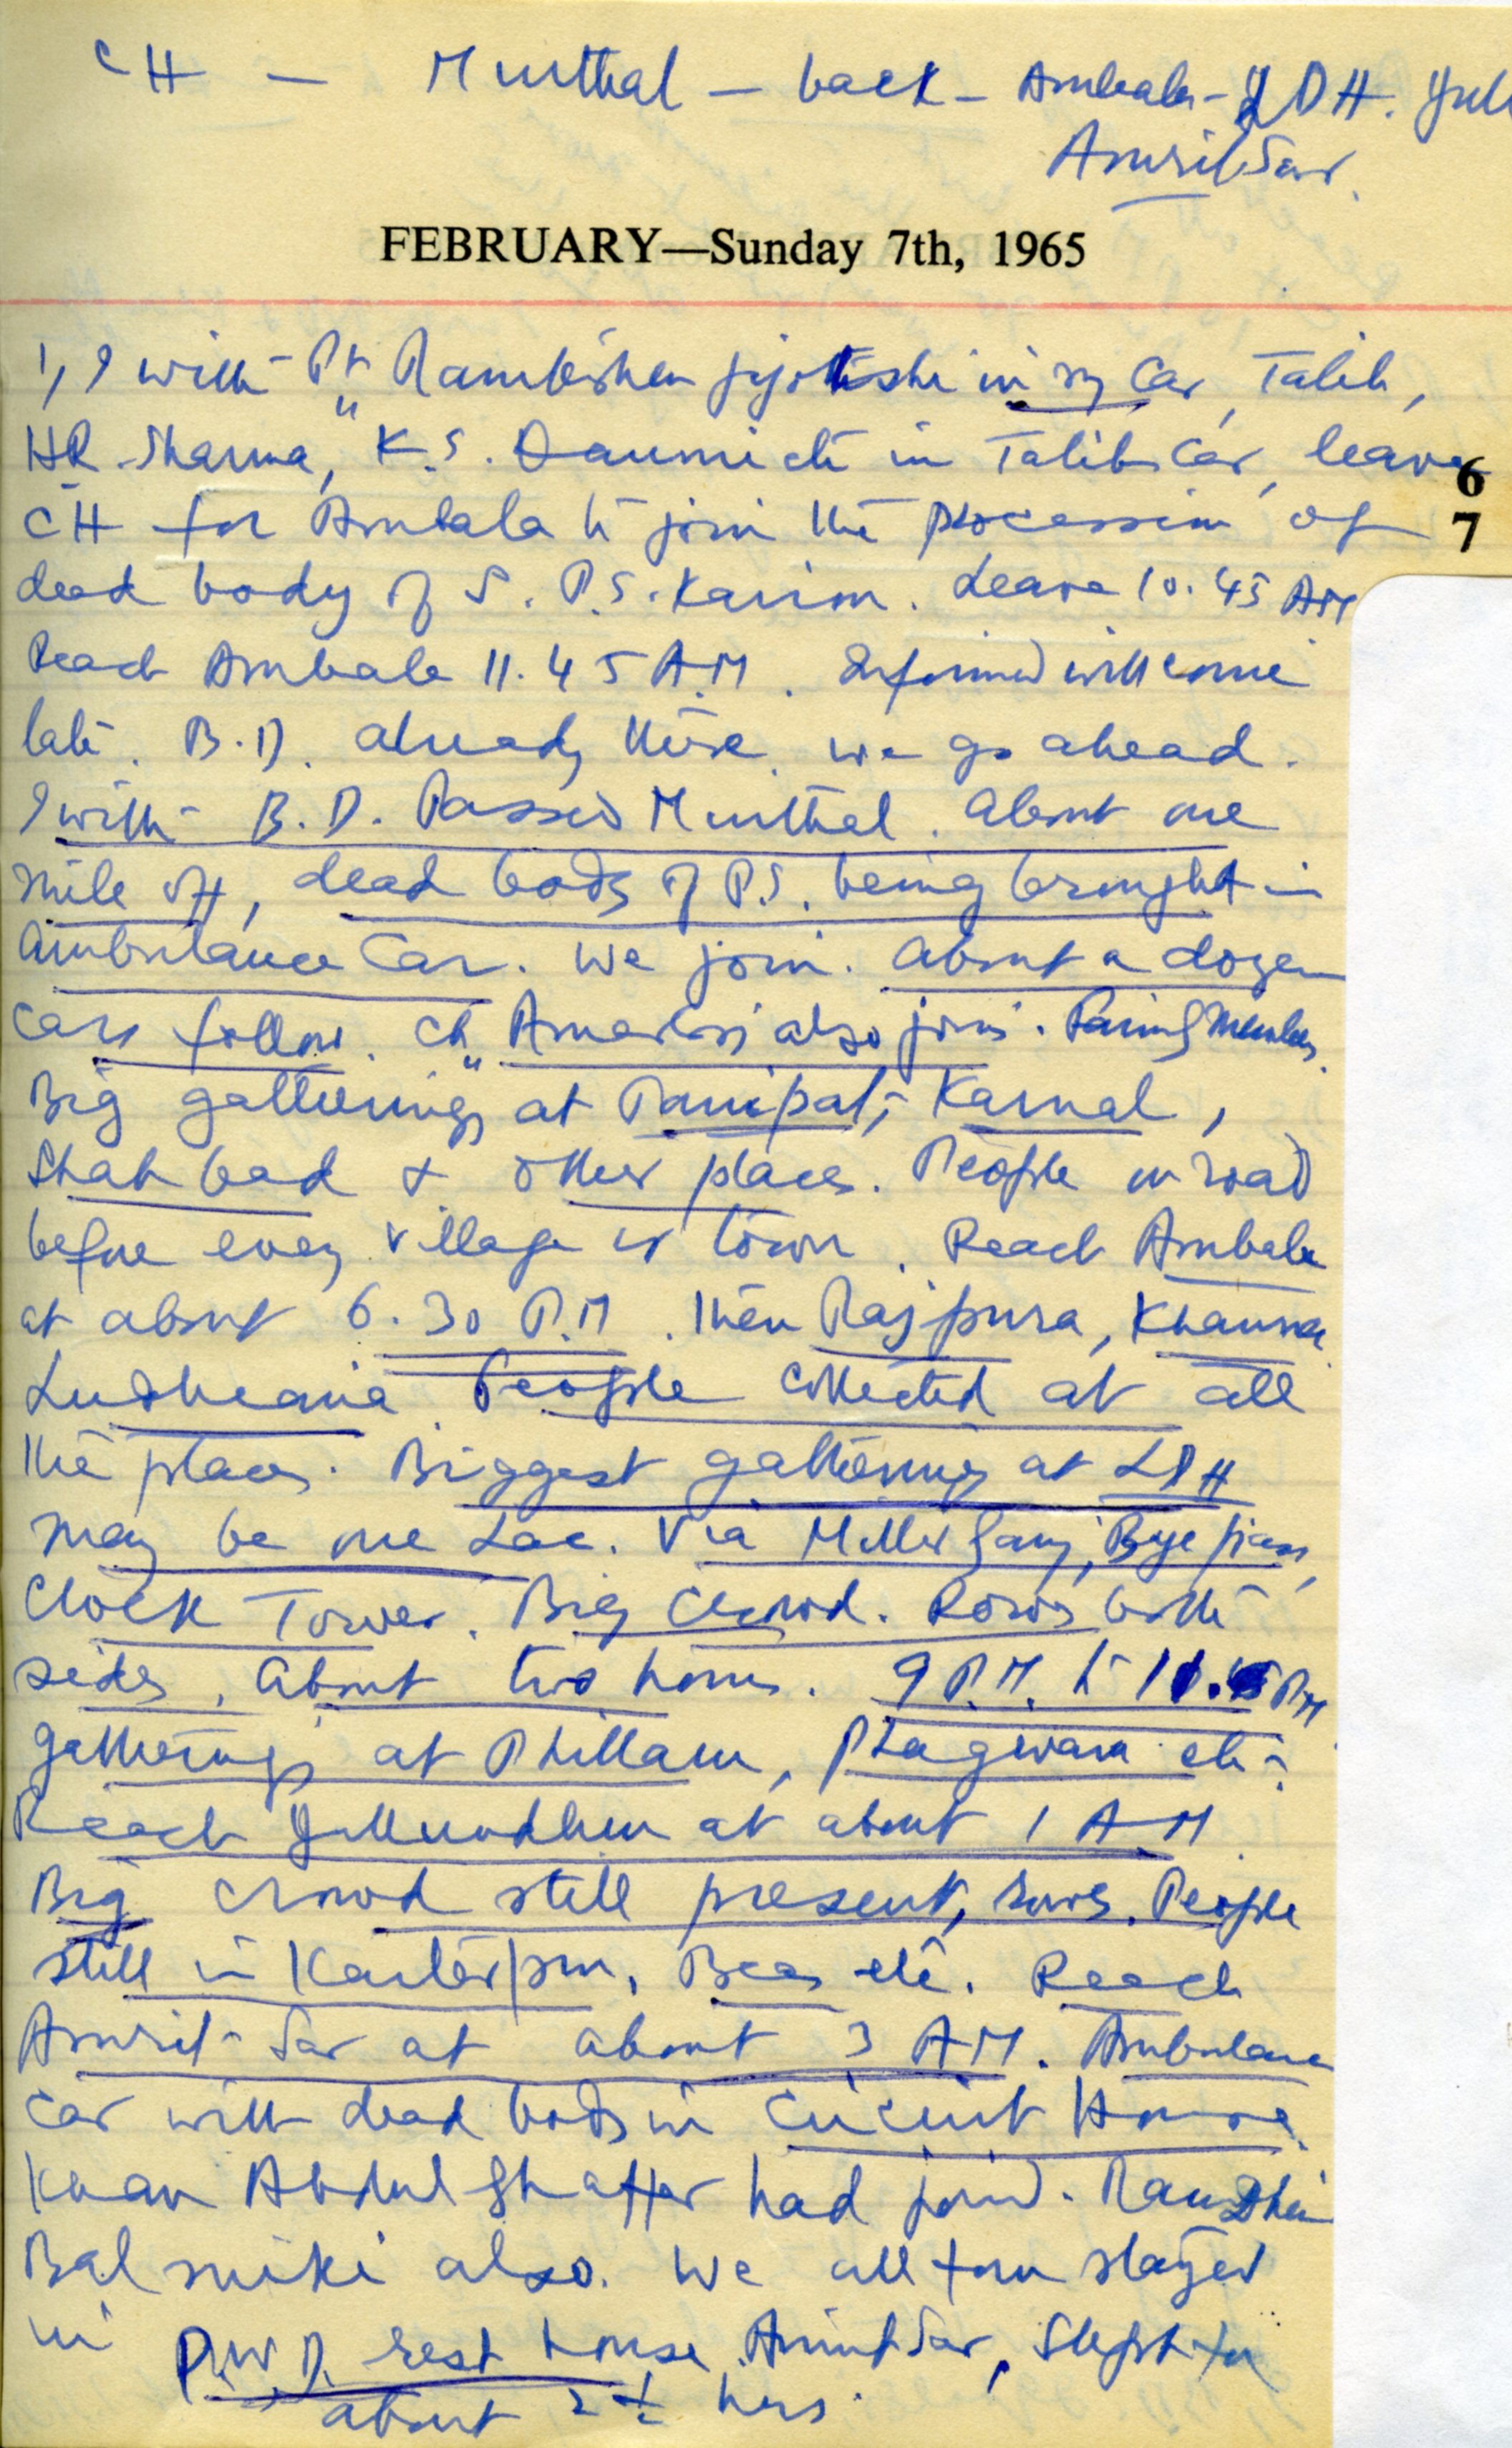 CH — Murthal — back — Ambala - LDH. Jull
Amritsar.
FEBRUARY—Sunday 7th, 1965
1, I with Pt Ramkishen Jyotishi in my Car, Talib,
HR Sharma, K.S. in Talib Car, leave
6
CH for Ambala to join the procession of
7
dead body of S. P.S. Kairon. Leave 10.45 AM
Reach Ambala 11.45 A.M. Informed will come
late. B.D. already there. We go ahead.
I with B.D. Passed Murthal. About one
mile off, dead body of P.S. being brought in
ambulance Car. We join. About a dozen
cars follow. Ch also joins. Members.
Big gatherings at Panipat, Karnal,
Shahbad & other places. People on road
before every village or town. Reach Ambala
at about 6.30 P.M. then Rajpura, Khanna
Ludheana. People collected at all
the places. Biggest gathering at LDH
may be one Lac. Via Miller Ganj, Bye pass,
Clock Tower. Big Crowd. Rows both
sides. About two hours. 9 P.M. to PM
gatherings at Phillaur, Phagwara etc.
Reach Jullundhur at about 1 A.M.
Big crowd still present, rows. People
still in Kartarpur, Beas etc. Reach
Amrit-Sar at about 3 AM. Ambulance
car with dead body in Circuit House.
Khan Abdul Ghaffar had joined.
Balmiki also. We all four stayed
in P.W.D. rest house Amritsar, Slept for
about 2½ hrs.